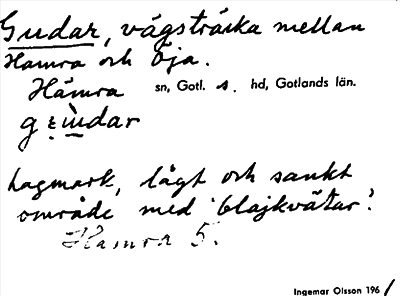 Gudar, vägsträcka mellan
Hamra och Öja.
Hamra sn, Gotl. s. hd, Gotlands län.
Hagmark, lågt och sankt
område med 'blajkvätar'.
Hamra 5.
Ingemar Olsson 1961